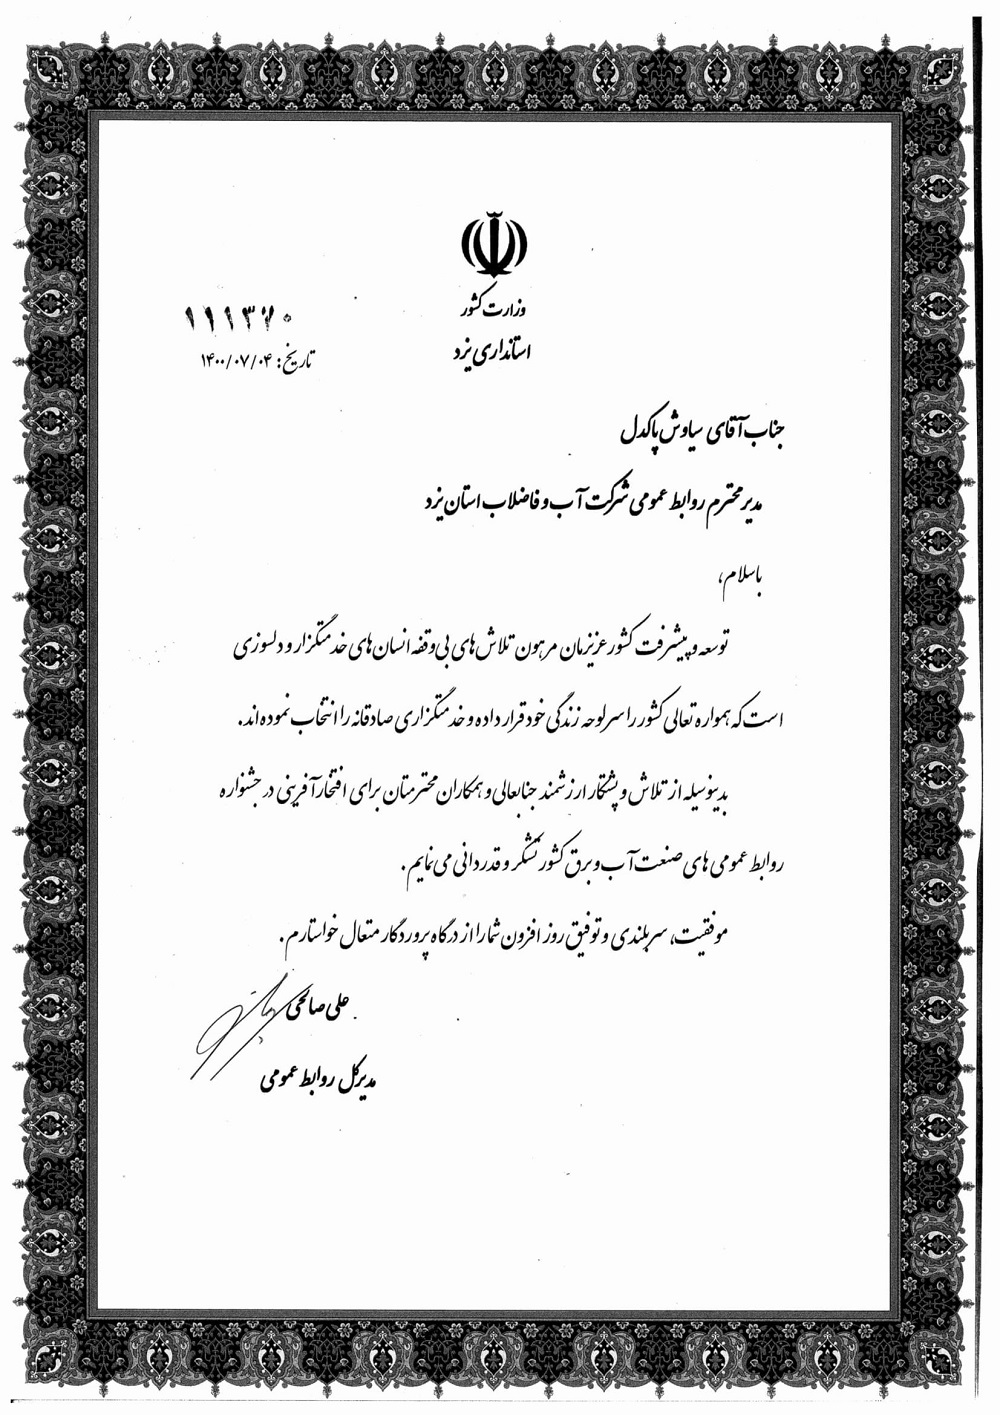 وزارت کشور
استانداری یزد
تاریخ: ۱۴۰۰/۰۷/۰۴
جناب آقای سیاوش پاکدل
مدیر محترم روابط عمومی شرکت آب و فاضلاب استان یزد
باسلام،
توسعه و پیشرفت کشور عزیزمان مرهون تلاش های بی وقفه انسان های خدمتگزار و دلسوزی
است که همواره تعالی کشور را سرلوحه زندگی خود قرار داده و خدمتگزاری صادقانه را انتخاب نموده اند.
بدینوسیله از تلاش و پشتکار ارزشمند جنابعالی و همکاران محترمتان برای افتخارآفرینی در جشنواره
روابط عمومی های صنعت آب و برق کشور تشکر و قدردانی می نمایم.
موفقیت، سربلندی و توفیق روز افزون شما را از درگاه پروردگار متعال خواستارم.
علی صالحی
مدیرکل روابط عمومی